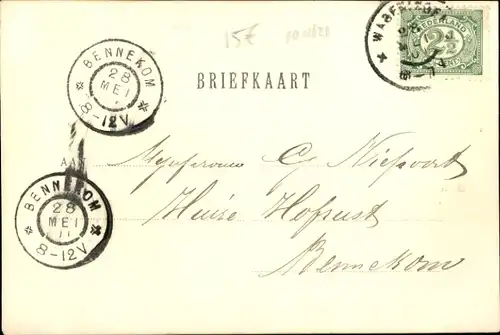 15€
BENNEKOM
28
MEI
8-12V
NEDERLAND
2½
BRIEFKAART
AAN
Mejuffrouw
Huize Hofrust
Bennekom
BENNEKOM
28
MEI
11
8-12V